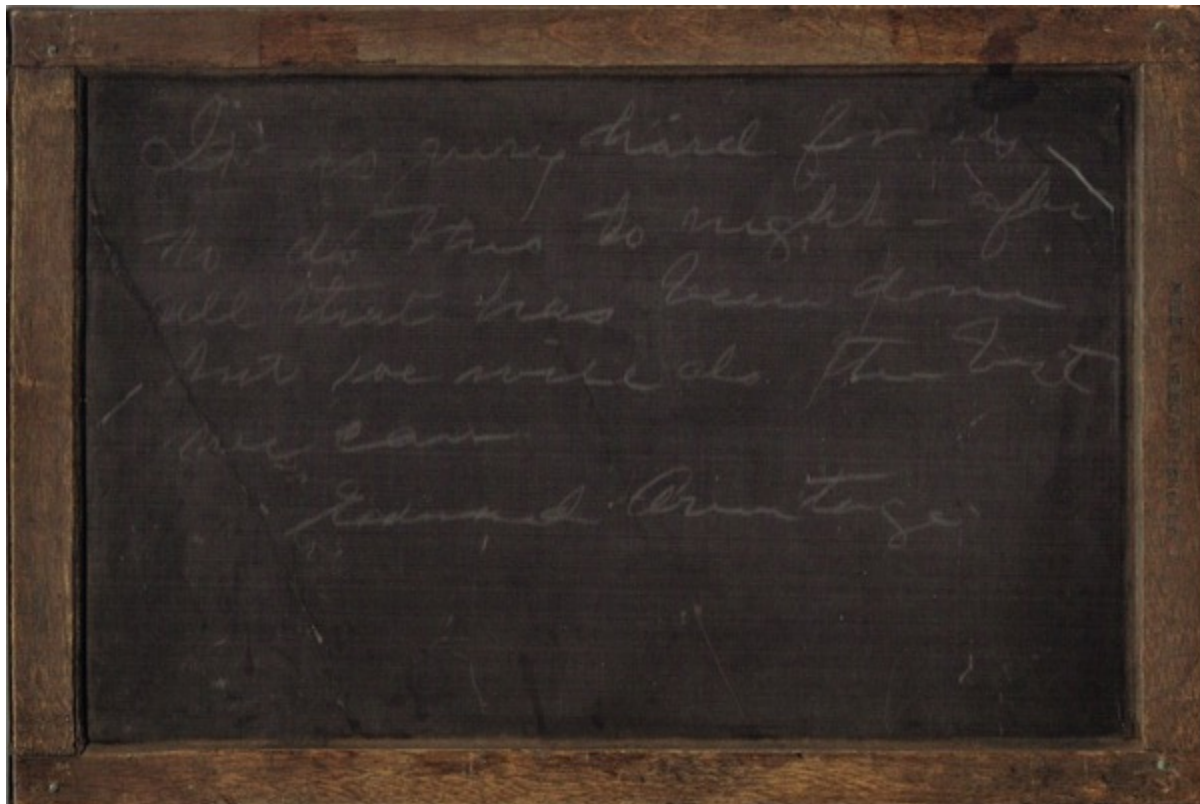 It is very hard for us
to do this to night - after
all that has been done
but we will do the best
we can
Edward Armitage